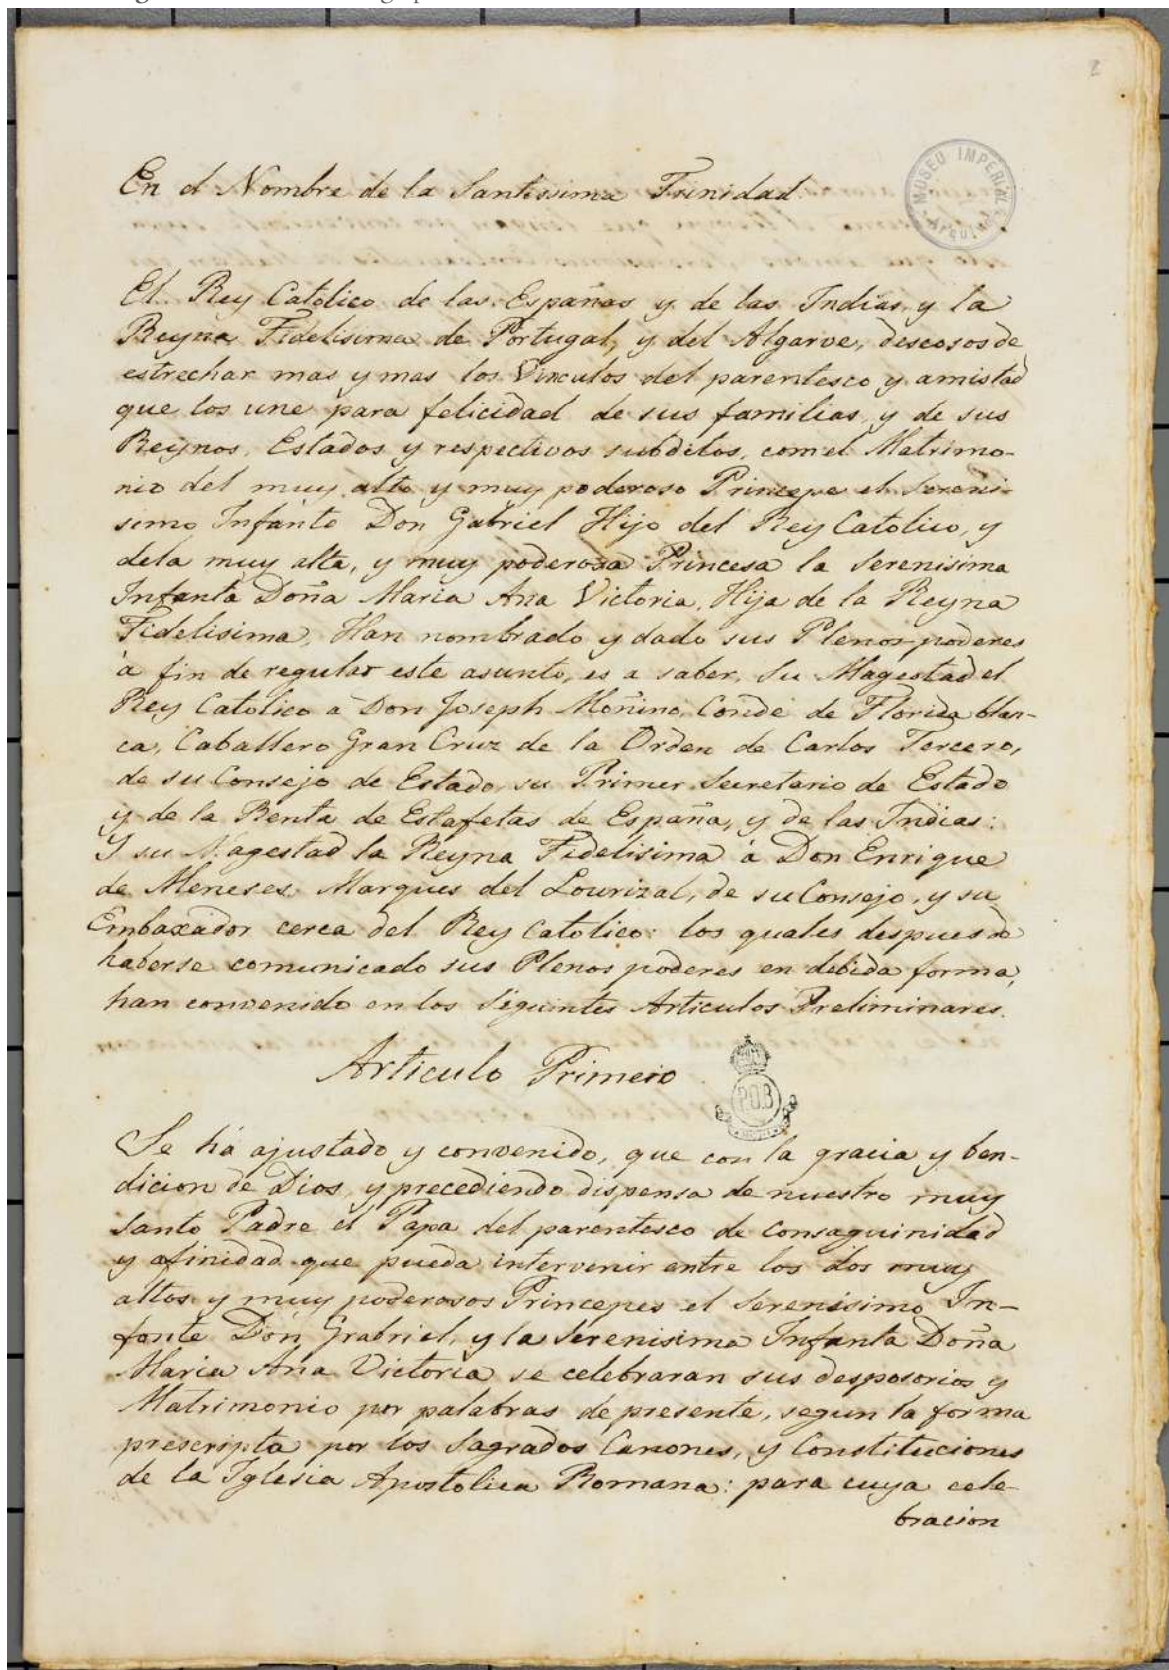 2
MUSEU IMPERIAL
Arquivo
En el Nombre de la Santissima Trinidad.
El Rey Catolico de las Españas y de las Indias, y la
Reyna Fidelisima de Portugal, y del Algarve, deseosos de
estrechar mas y mas los Vinculos del parentesco y amistad
que los une para felicidad de sus familias, y de sus
Reynos, Estados y respectivos subditos, com el Matrimo-
nio del muy alto y muy poderoso Principe el Sereni-
simo Infante Don Gabriel Hijo del Rey Catolico, y
dela muy alta, y muy poderosa Princesa la Serenisima
Infanta Doña Maria Ana Victoria, Hija de la Reyna
Fidelisima, Han nombrado y dado sus Plenos poderes
à fin de regular este asunto, es a saber, Su Magestad el
Rey Catolico à Don Joseph Moñino, Conde de Florida blan-
ca, Caballero Gran Cruz de la Orden de Carlos Tercero,
de su Consejo de Estado, su Primer Secretario de Estado
y de la Renta de Estafetas de España, y de las Indias:
Y su Magestad la Reyna Fidelisima à Don Enrique
de Meneses Marques del Lourizal, de su Consejo, y su
Embaxador cerca del Rey Catolico: los quales despues de
haberse comunicado sus Plenos poderes en debida forma,
han convenido en los Siguintes Articulos Preliminares.
Articulo Primero
P.O.B
Se há ajustado y convenido, que con la gracia y ben-
dicion de Dios, y precediendo dispensa de nuestro muy
Santo Padre el Papa del parentesco de Consaguinidad
y afinidad que pueda intervenir entre los dos muy
altos y muy poderosos Principes el Serenisimo In-
fante Don Grabriel, y la Serenisima Infanta Doña
Maria Ana Victoria se celebraran sus desposorios y
Matrimonio por palabras de presente, segun la forma
prescripta por los Sagrados Canones, y Constituciones
de la Iglesia Apostolica Romana: para cuya cele-
bracion